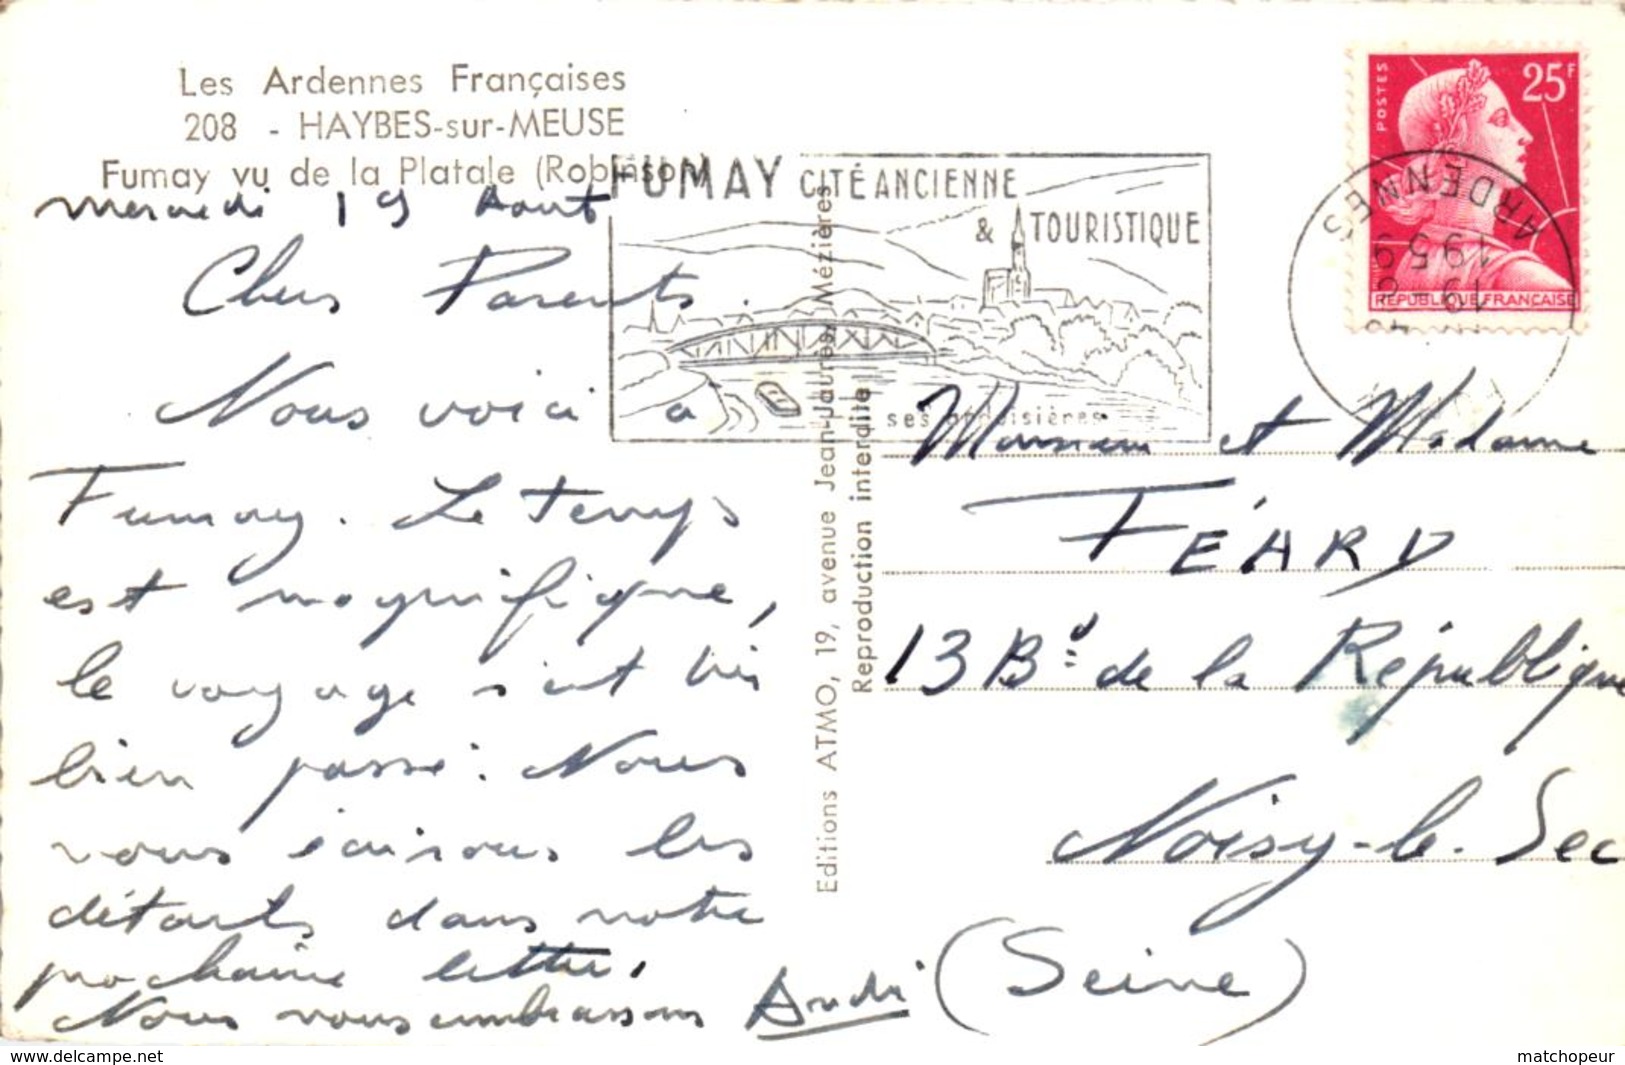 Les Ardennes Françaises
208 - HAYBES-sur-MEUSE
Fumay vu de la Platale (Robinson)
Mercredi 19 Aout
Chers Parents.
Nous voici à
Fumay. Le temps
est magnifique,
le voyage s'est très
bien passé. Nous
vous écrirons les
détails dans notre
prochaine lettre.
Nous vous embrassons André
FUMAY CITÉ ANCIENNE
& TOURISTIQUE
ses ardoisières
Editions ATMO, 19, avenue Jean-Jaurès, Mézières
Reproduction interdite
POSTES
25F
REPUBLIQUE FRANÇAISE
ARDENNES
195
19
Monsieur et Madame
FÉARD
13 Bd de la République
Noisy-le-Sec
(Seine)
delcampe.net
matchopeur